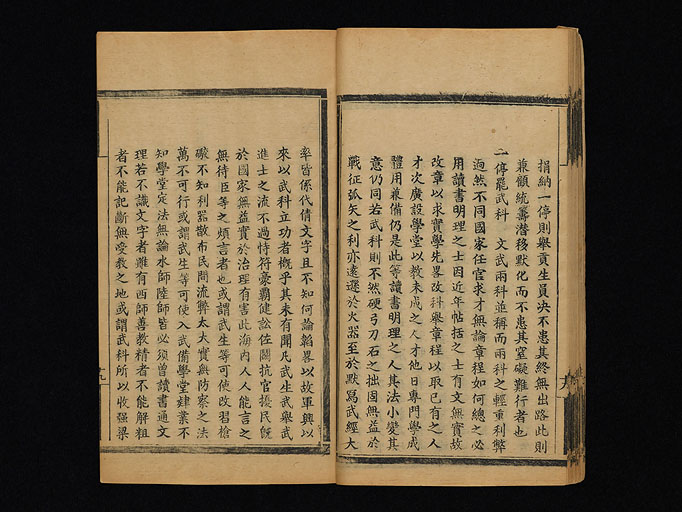 捐納一停則舉貢生員決不患其終無出路此則
兼顧統籌潛移默化而不患其窒礙難行者也
一停罷武科　文武兩科並稱而兩科之輕重利弊
迥然不同國家任官求才無論章程如何總之必
用讀書明理之士因近年帖括之士有文無實故
改章以求實學先畧改科舉章程以取已有之人
才次廣設學堂以教未成之人才他日專門學成
體用兼備仍是此等讀書明理之人其法小變其
意仍同若武科則不然硬弓刀石之拙固無益於
戰征弧矢之利亦遠遜於火器至於默寫武經大
率皆係代倩文字且不知何論韜畧以故軍興以
來以武科立功者概乎其未有聞凡武生武舉武
進士之流不過恃符豪霸健訟佐鬬抗官擾民旣
於國家無益實於治理有害此海內人人能言之
無待臣等之煩言者也或謂武生等可使改習槍
礮不知利器散布民間流弊太大實無防察之法
萬不可行或謂武生等可使入武備學堂肄業不
知學堂定法無論水師陸師皆必須曾讀書通文
理若不識文字者雖有西師善教精者不能解粗
者不能記斷無受教之地或謂武科所以收强梁
十九